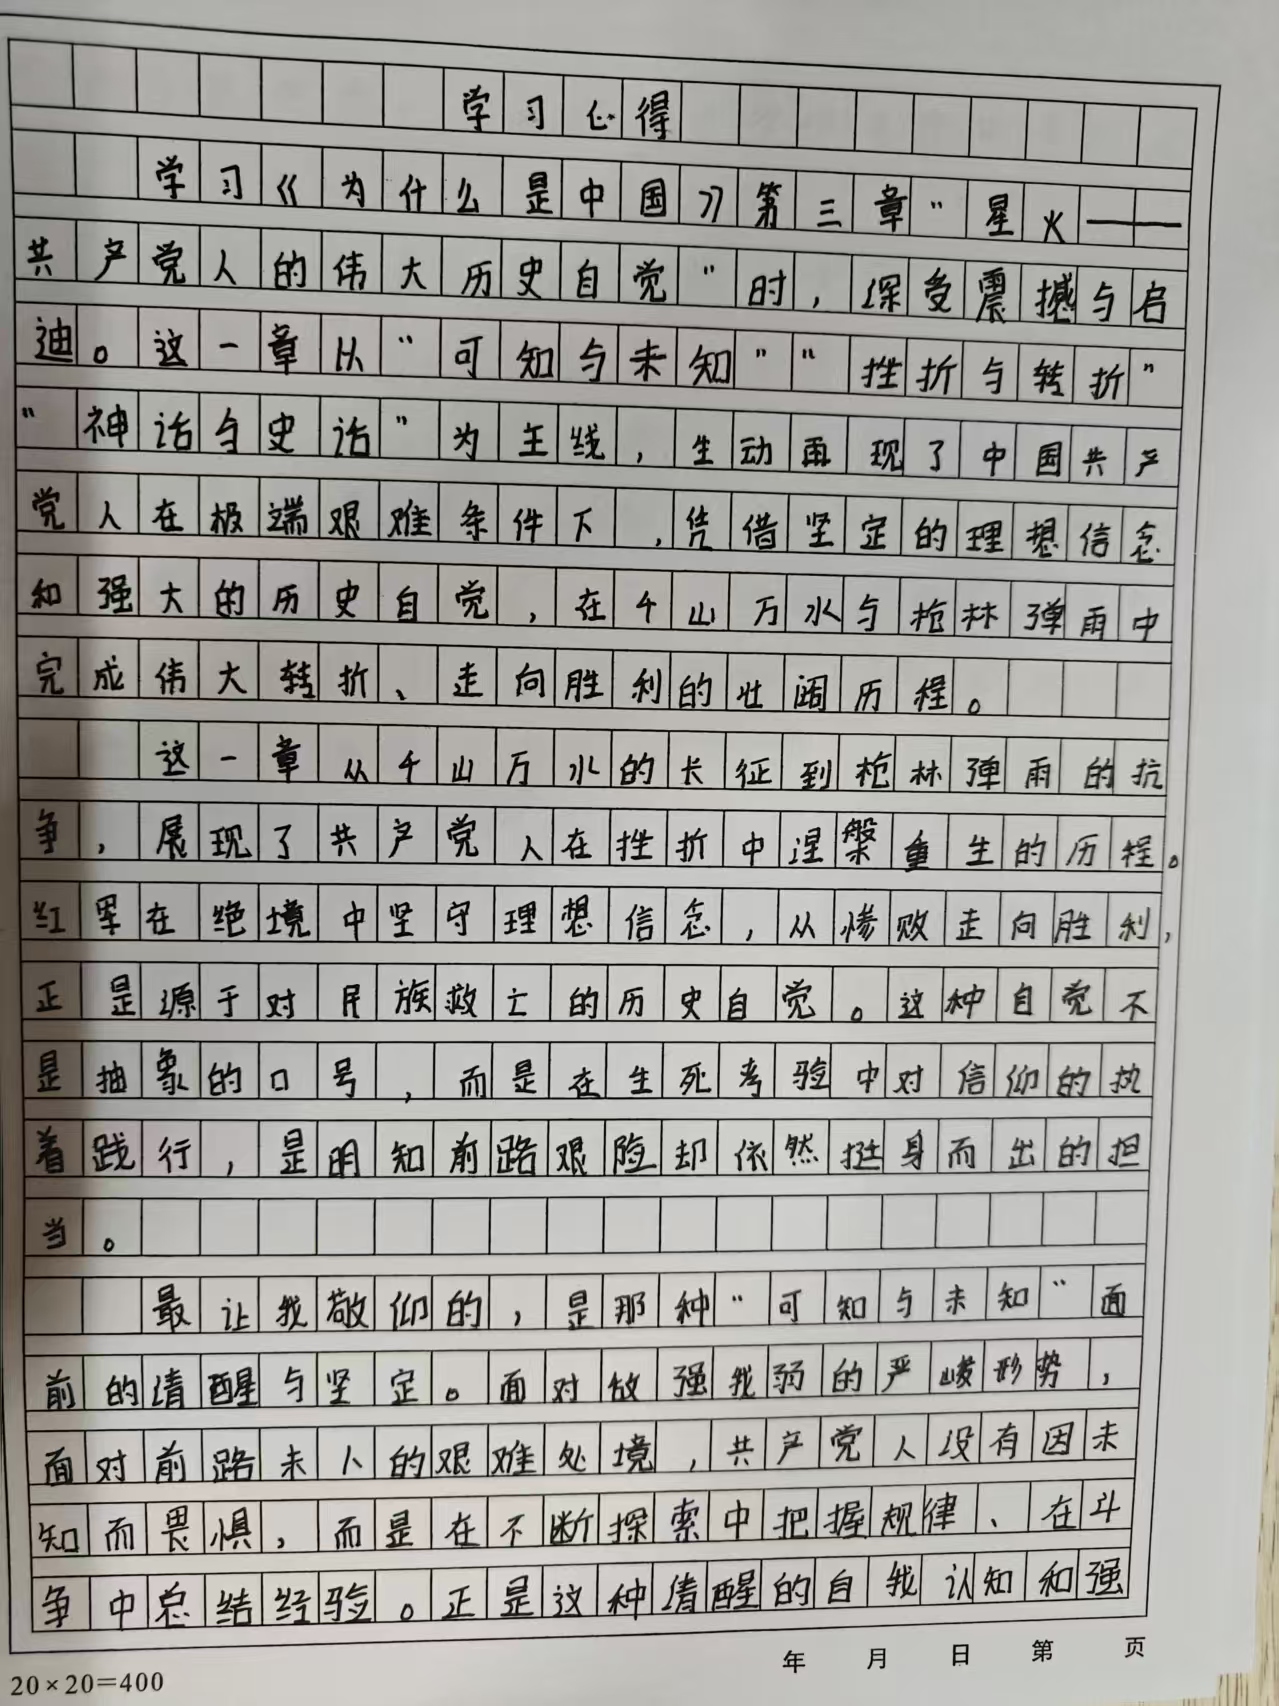 学习心得
学习《为什么是中国》第三章"星火——
共产党人的伟大历史自觉"时，深受震撼与启
迪。这一章从"可知与未知""挫折与转折"
"神话与史话"为主线，生动再现了中国共产
党人在极端艰难条件下，凭借坚定的理想信念
和强大的历史自觉，在千山万水与枪林弹雨中
完成伟大转折、走向胜利的壮阔历程。
这一章从千山万水的长征到枪林弹雨的抗
争，展现了共产党人在挫折中涅槃重生的历程。
红军在绝境中坚守理想信念，从惨败走向胜利，
正是源于对民族救亡的历史自觉。这种自觉不
是抽象的口号，而是在生死考验中对信仰的执
着践行，是明知前路艰险却依然挺身而出的担
当。
最让我敬仰的，是那种"可知与未知"面
前的清醒与坚定。面对敌强我弱的严峻形势，
面对前路未卜的艰难处境，共产党人没有因未
知而畏惧，而是在不断探索中把握规律、在斗
争中总结经验。正是这种清醒的自我认知和强
年 月 日 第 页
20×20=400